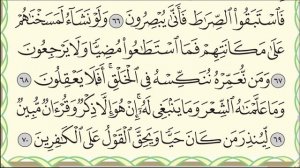 فَٱسْتَبَقُوا۟ ٱلصِّرَٰطَ فَأَنَّىٰ يُبْصِرُونَ ٦٦ وَلَوْ نَشَآءُ لَمَسَخْنَٰهُمْ
عَلَىٰ مَكَانَتِهِمْ فَمَا ٱسْتَطَٰعُوا۟ مُضِيًّا وَلَا يَرْجِعُونَ
٦٧ وَمَن نُّعَمِّرْهُ نُنَكِّسْهُ فِى ٱلْخَلْقِ أَفَلَا يَعْقِلُونَ ٦٨
وَمَا عَلَّمْنَٰهُ ٱلشِّعْرَ وَمَا يَنۢبَغِى لَهُۥٓ إِنْ هُوَ إِلَّا ذِكْرٌ وَقُرْءَانٌ مُّبِينٌ
٦٩ لِّيُنذِرَ مَن كَانَ حَيًّا وَيَحِقَّ ٱلْقَوْلُ عَلَى ٱلْكَٰفِرِينَ ٧٠